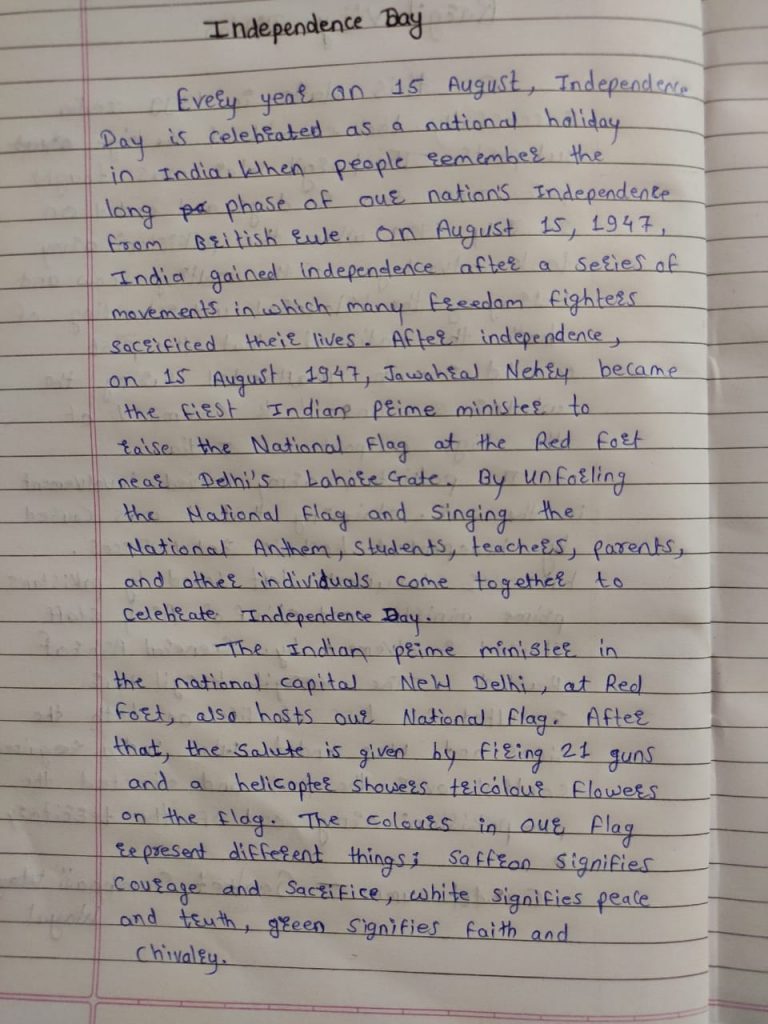 Independence Day
Every year on 15 August, Independence
Day is celebrated as a national holiday
in India. When people remember the
long phase of our nation's Independence
from British rule. On August 15, 1947,
India gained independence after a series of
movements in which many freedom fighters
sacrificed their lives. After independence,
on 15 August 1947, Jawahral Nehry became
the first Indian prime minister to
raise the National Flag at the Red fort
near Delhi's Lahore Gate. By unforling
the National flag and Singing the
National Anthem, students, teachers, parents,
and other individuals come together to
celebrate Independence Day.
The Indian prime minister in
the national capital New Delhi, at Red
Fort, also hosts our National flag. After
that, the salute is given by firing 21 guns
and a helicopter showers tricolour flowers
on the flag. The colours in our flag
represent different things; saffron signifies
courage and sacrifice, white signifies peace
and truth, green signifies faith and
chivalry.